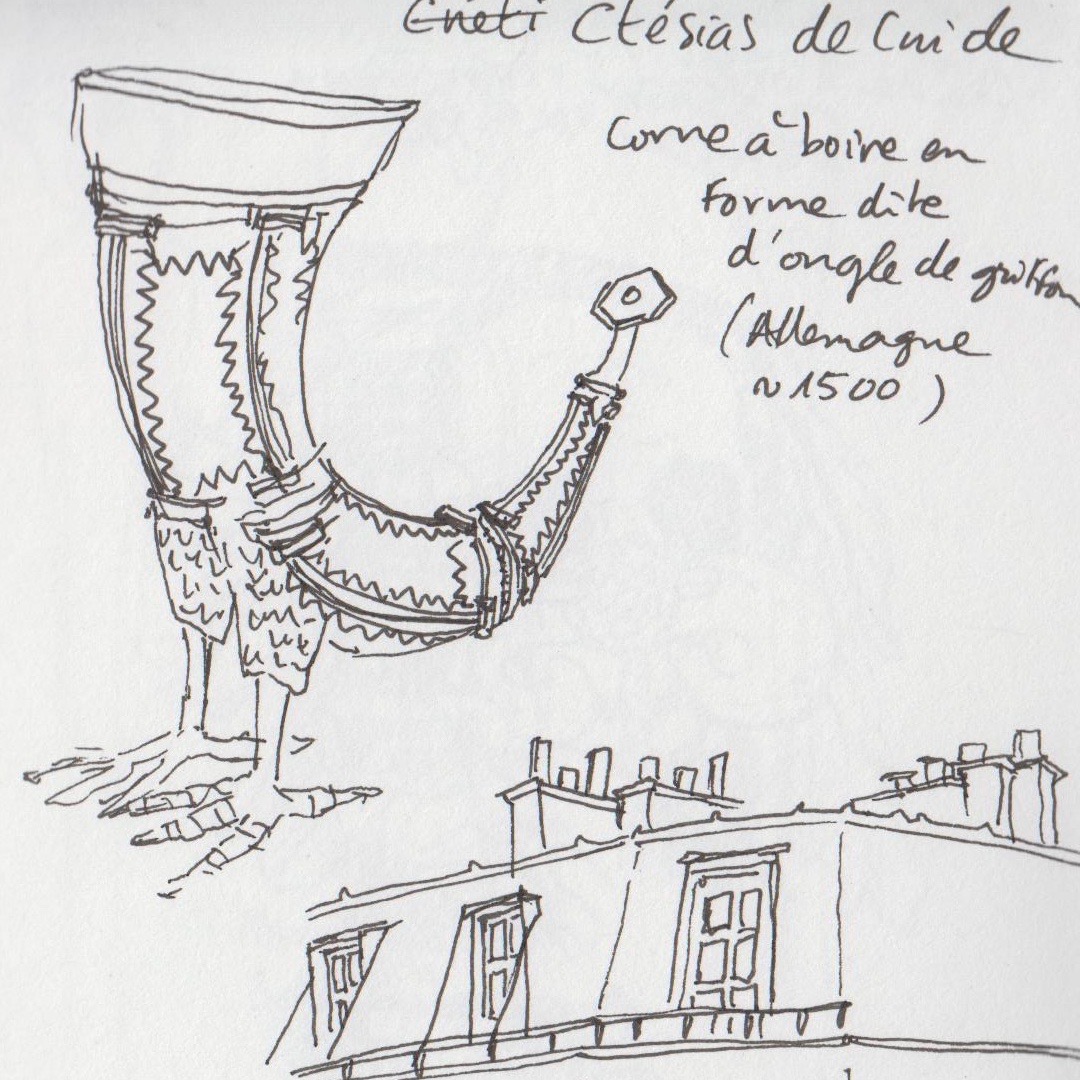 Cnéti Ctésias de Cnide
Corne à boire en
forme dite
d'ongle de griffon
(Allemagne
~1500)